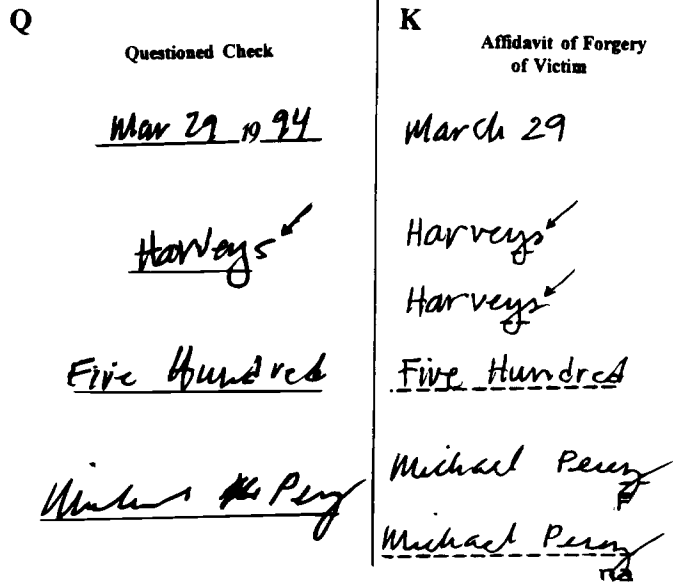 Q
Questioned Check
Mar 29 1994
Harveys
Five Hundred
K
Affidavit of Forgery
of Victim
March 29
Harveys
Harveys
Five Hundred
Michael Perez
Michael Perez